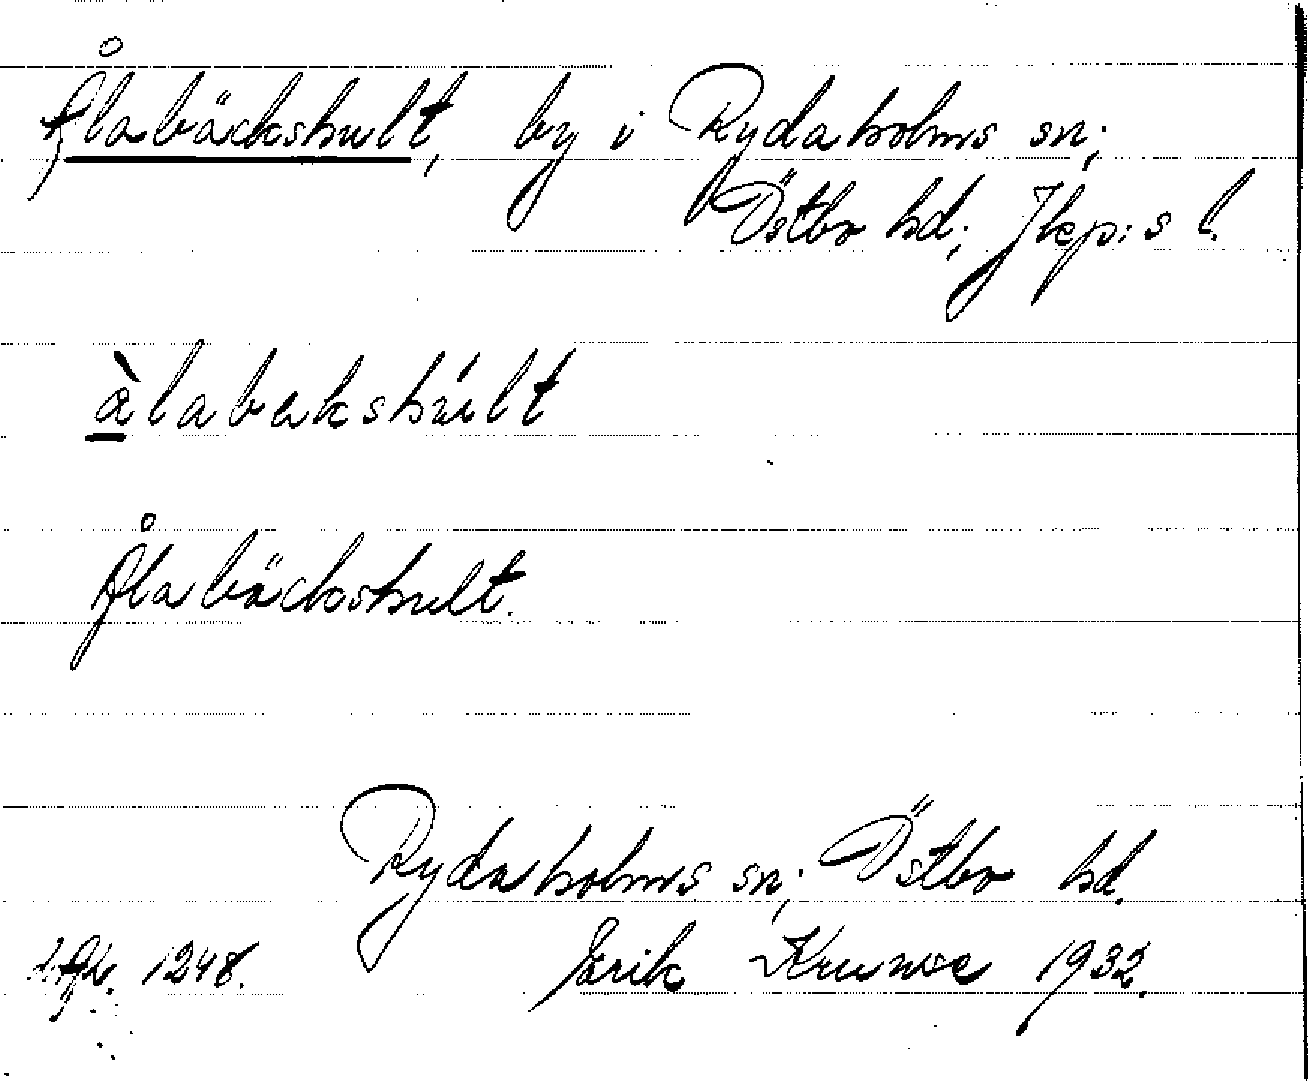 Ålabäckshult, by i Rydaholms sn;
Östbo hd; Jkp:s l.
àlabækshúlt
Ålabäckshult.
Rydaholms sn; Östbo hd.
1248. Erik Krunse 1932.